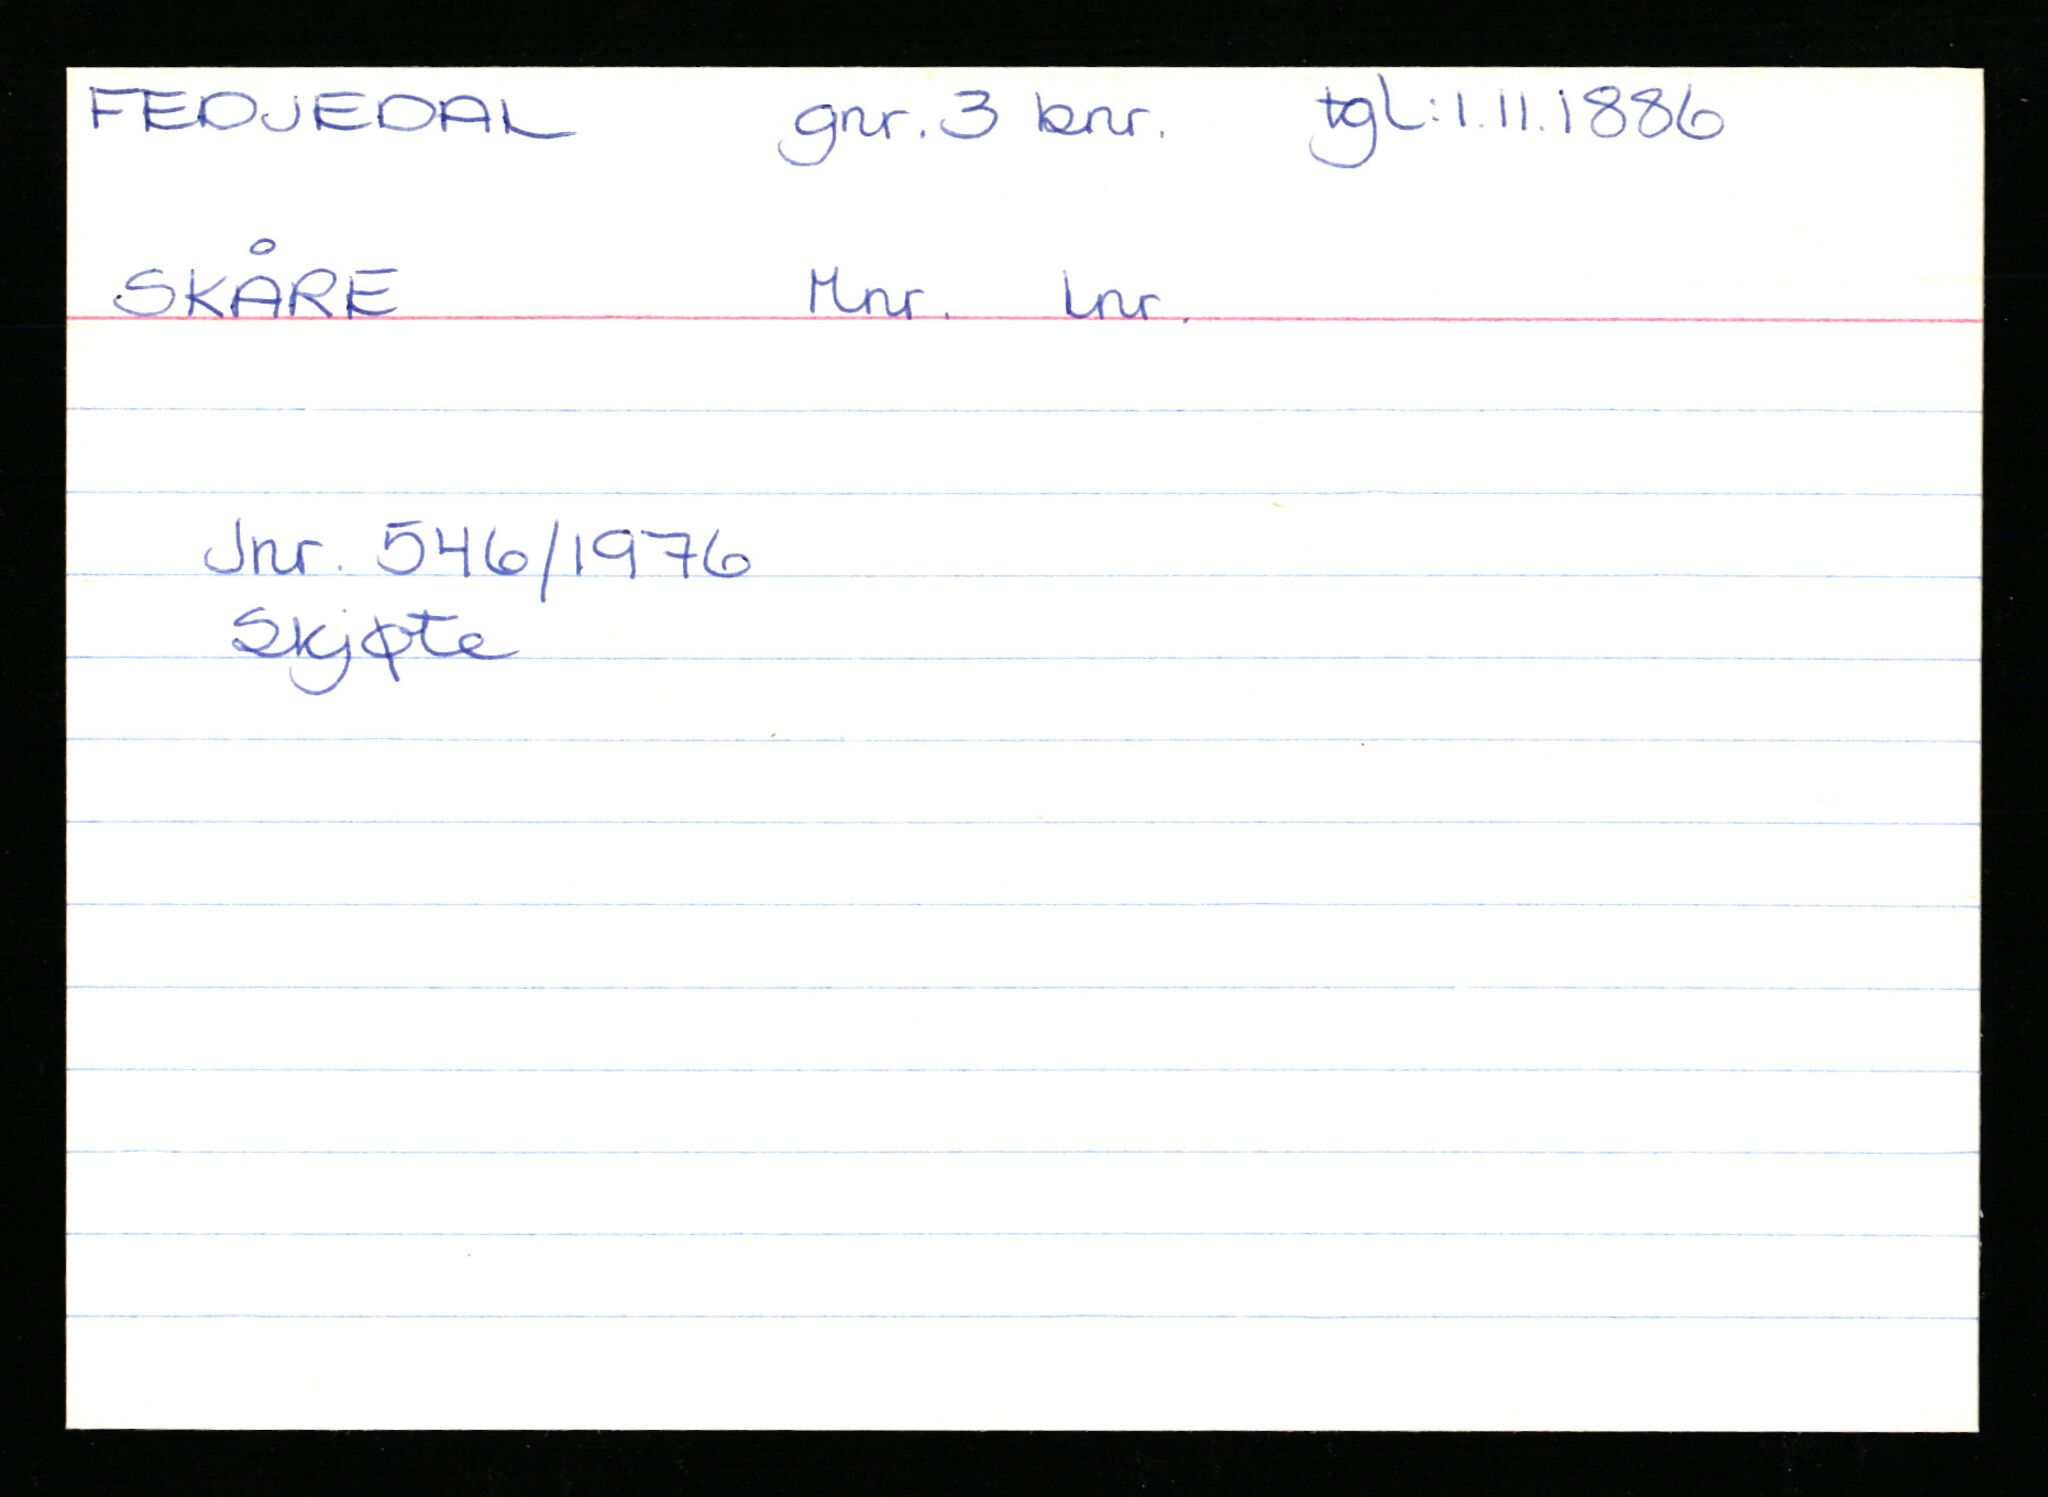 FEDJEDAL gnr. 3 bnr. tgl: 1.11.1886
SKÅRE Mnr. Lnr.
Jnr. 546/1976
Skjøte